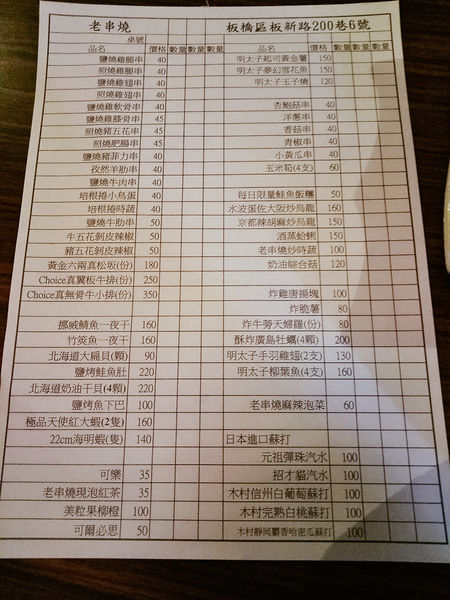 老串燒 板橋區板新路200巷6號
桌號
品名 價格 數量 數量 數量 品名 價格 數量 數量 數量
鹽燒雞腿串 40 明太子起司黃金薯 150
照燒雞腿串 40 明太子夢幻雪花魚 150
鹽燒雞翅串 40 明太子玉子燒 120
照燒雞翅串 40
鹽燒雞軟骨串 40 杏鮑菇串 40
鹽燒雞膝骨串 45 洋蔥串 40
照燒豬五花串 45 香菇串 40
照燒肥腸串 45 青椒串 40
鹽燒豬菲力串 40 小黃瓜串 40
孜然羊肋串 40 玉米筍(4支) 60
鹽燒牛肉串 40
培根捲小鳥蛋 40 每日限量鮭魚飯糰 50
培根捲時蔬 40 水波蛋佐大阪炒烏龍 150
鹽燒牛肋串 50 京都辣胡麻炒烏龍 150
牛五花剝皮辣椒 50 酒蒸蛤蜊 150
豬五花剝皮辣椒 50 老串燒炒時蔬 100
黃金六兩真松坂(份) 180 奶油綜合菇 120
Choice真翼板牛排(份) 250
Choice真無骨牛小排(份) 350 炸雞唐揚塊 100
炸脆薯 80
挪威鯖魚一夜干 160 炸牛蒡天婦羅(份) 80
竹筴魚一夜干 160 酥炸廣島牡蠣(4顆) 200
北海道大扁貝(顆) 90 明太子手羽雞翅(2支) 130
鹽烤鮭魚肚 220 明太子柳葉魚(4支) 160
北海道奶油干貝(4顆) 220
鹽烤魚下巴 100 老串燒麻辣泡菜 60
極品天使紅大蝦(2隻) 160
22cm海明蝦(隻) 140 日本進口蘇打
元祖彈珠汽水 100
可樂 35 招才貓汽水 100
老串燒現泡紅茶 35 木村信州白葡萄蘇打 100
美粒果柳橙 100 木村完熟白桃蘇打 100
可爾必思 50 木村靜岡麝香哈密瓜蘇打 100